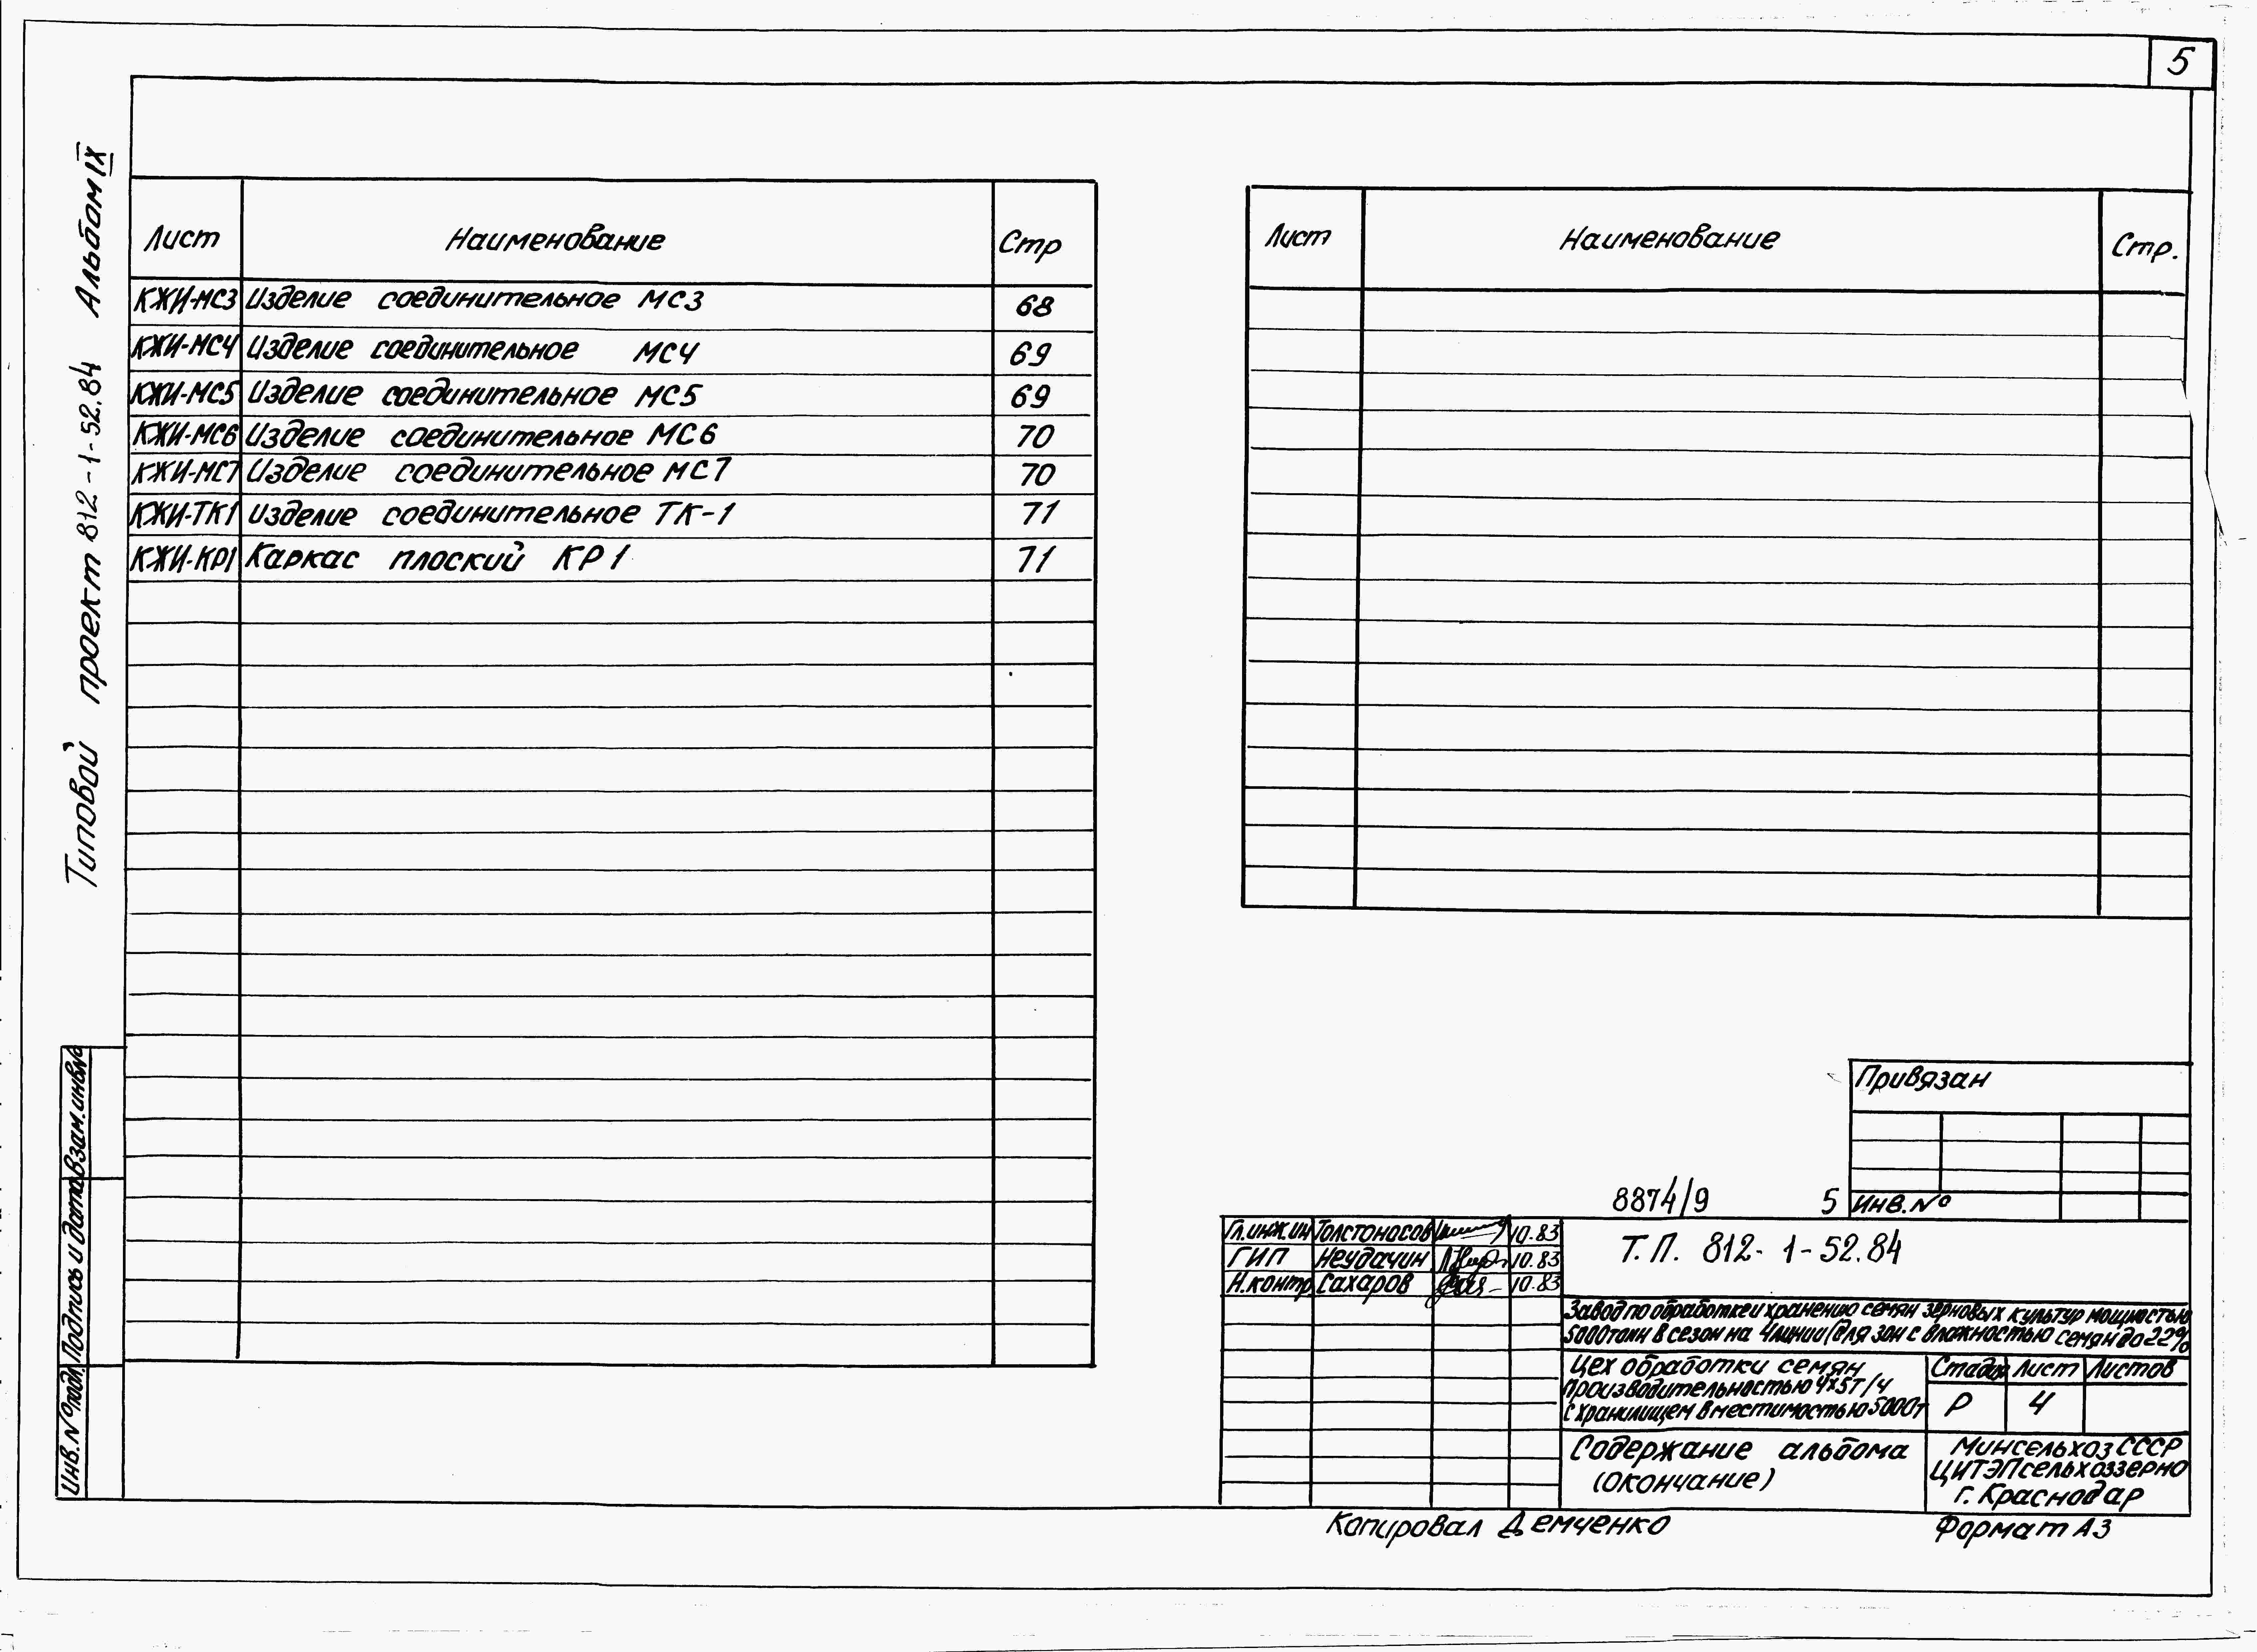 5
Типовой проект 812-1-52.84 Альбом IX
Лист Наименование Стр
КЖИ-МС3 Изделие соединительное МС3 68
КЖИ-МС4 Изделие соединительное МС4 69
КЖИ-МС5 Изделие соединительное МС5 69
КЖИ-МС6 Изделие соединительное МС6 70
КЖИ-МС7 Изделие соединительное МС7 70
КЖИ-ТК1 Изделие соединительное ТК-1 71
КЖИ-КР1 Каркас плоский КР1 71
Лист Наименование Стр.
Взам.инв№
Подпись и дата
Инв.№ подл.
Привязан
Инв.№
8874/9 5
Гл.инж.ин Толстоносов 10.83
ГИП Неудачин 10.83
Н.контр. Сахаров 10.83
Т.П. 812-1-52.84
Завод по обработке и хранению семян зерновых культур мощностью
5000тонн в сезон на 4линии (для зон с влажностью семян до 22%
Цех обработки семян
производительностью 4х5т/ч
с хранилищем вместимостью 5000т
Стадия Лист Листов
Р 4
Содержание альбома
(окончание)
Минсельхоз СССР
ЦИТЭПсельхоззерно
г. Краснодар
Копировал Демченко
Формат А3